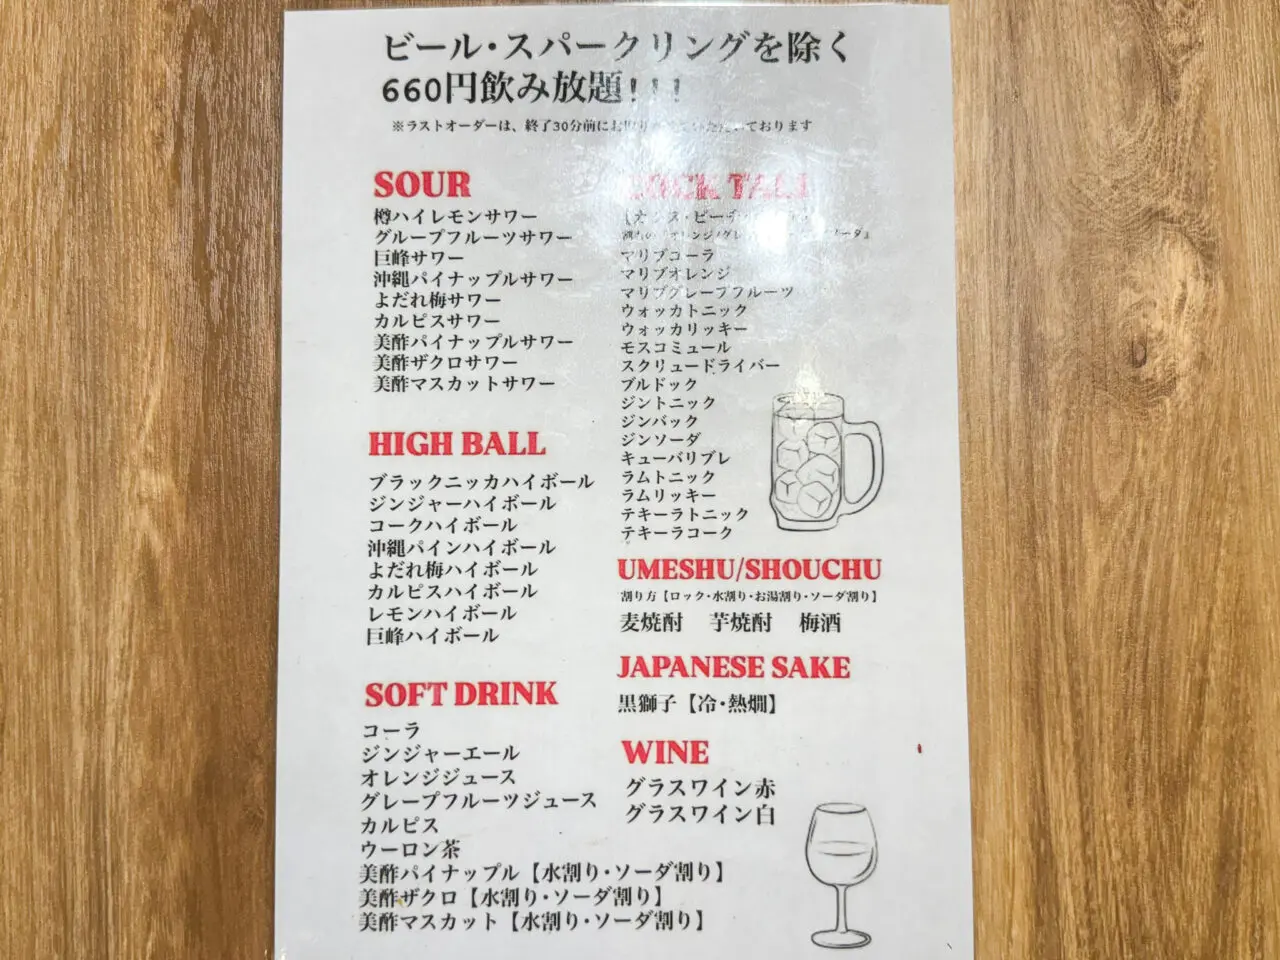 ビール・スパークリングを除く
660円飲み放題!!!
※ラストオーダーは、終了30分前にお ております
SOUR
樽ハイレモンサワー
グループフルーツサワー
巨峰サワー
沖縄パイナップルサワー
よだれ梅サワー
カルピスサワー
美酢パイナップルサワー
美酢ザクロサワー
美酢マスカットサワー
HIGH BALL
ブラックニッカハイボール
ジンジャーハイボール
コークハイボール
沖縄パインハイボール
よだれ梅ハイボール
カルピスハイボール
レモンハイボール
巨峰ハイボール
SOFT DRINK
コーラ
ジンジャーエール
オレンジジュース
グレープフルーツジュース
カルピス
ウーロン茶
美酢パイナップル【水割り・ソーダ割り】
美酢ザクロ【水割り・ソーダ割り】
美酢マスカット【水割り・ソーダ割り】
COCK TALL
マリブコーラ
マリブオレンジ
マリブグレープフルーツ
ウォッカトニック
ウォッカリッキー
モスコミュール
スクリュードライバー
ブルドック
ジントニック
ジンバック
ジンソーダ
キューバリブレ
ラムトニック
ラムリッキー
テキーラトニック
テキーラコーク
UMESHU/SHOUCHU
割り方【ロック・水割り・お湯割り・ソーダ割り】
麦焼酎 芋焼酎 梅酒
JAPANESE SAKE
黒獅子【冷・熱燗】
WINE
グラスワイン赤
グラスワイン白